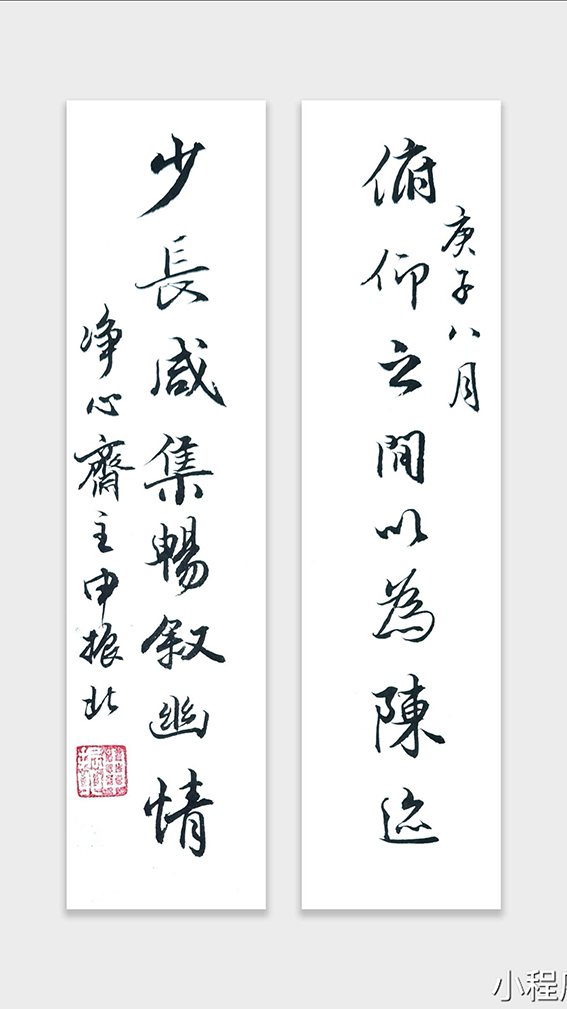 庚子八月
俯仰之間以為陳迹
少長咸集暢叙幽情
净心齋主申振北
小程